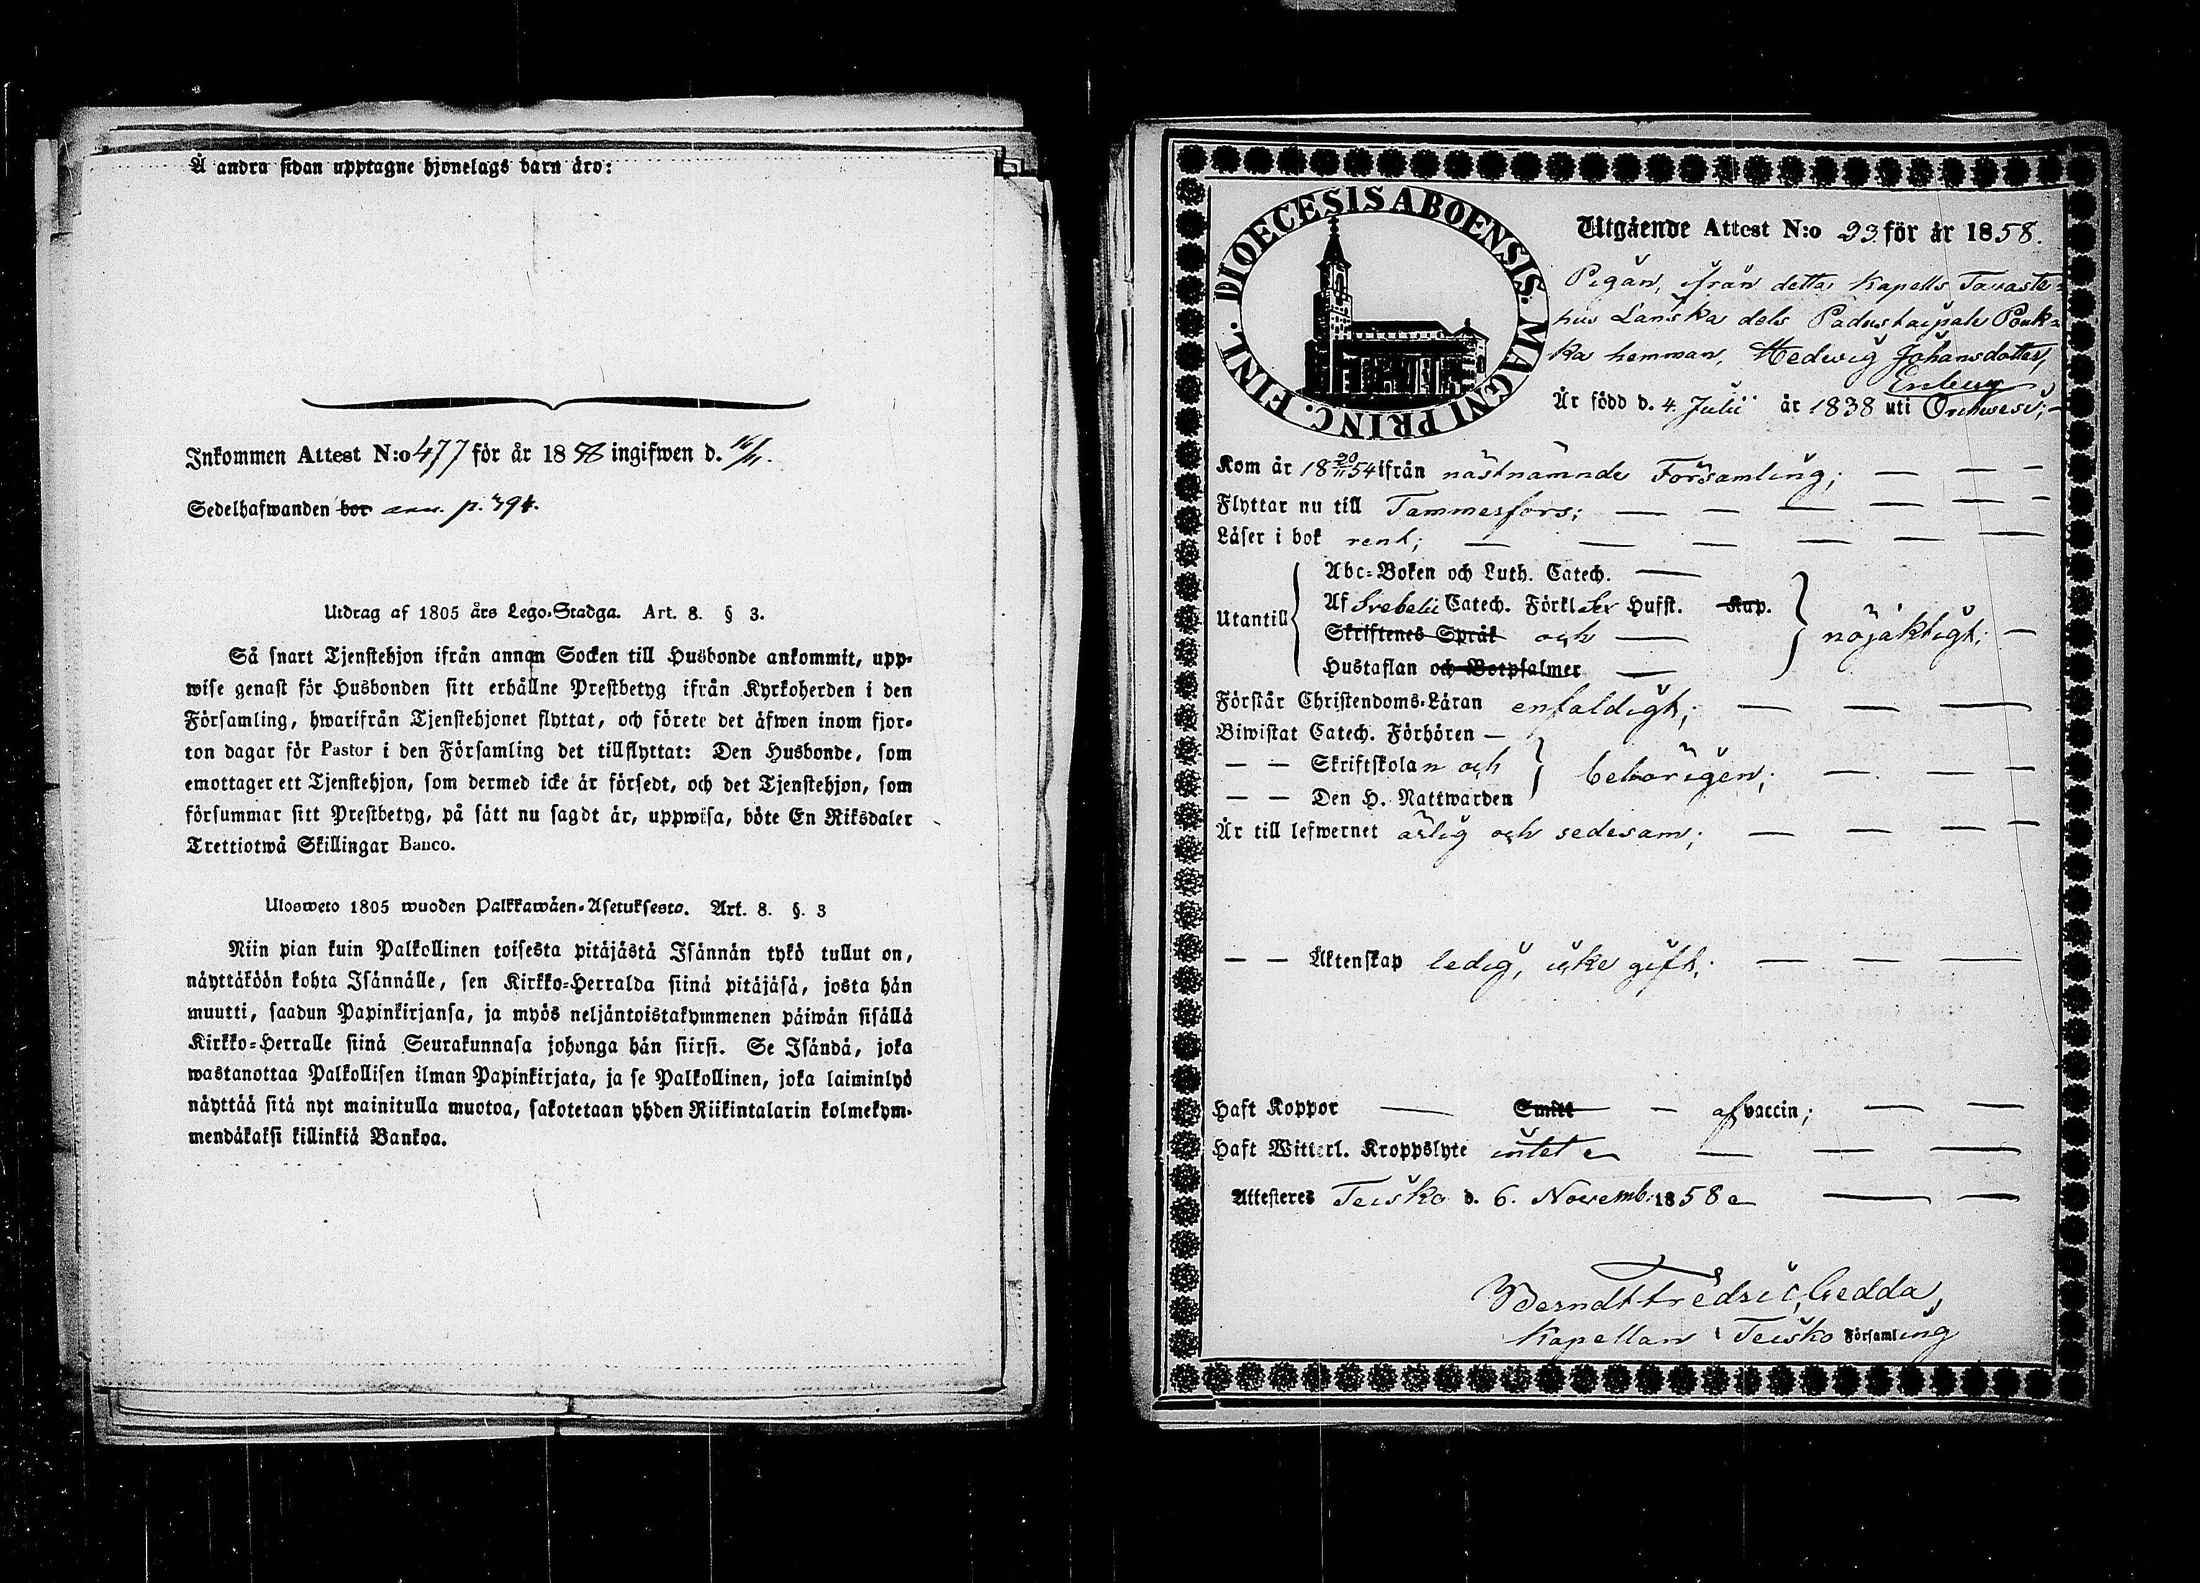 Å andra sidan upptagne hjonelags barn äro:
Inkommen Attest N:o 477 för år 1858 ingifwen d. 16/11.
Sedelhafwanden bor ann. p. 394.
Utdrag af 1805 års Lego-Stadga. Art. 8. § 3.
Så snart Tjenstehjon ifrån annan Socken till Husbonde ankommit, upp-
wise genast för Husbonden sitt erhållne Prestbetyg ifrån Kyrkoherden i den
Församling, hwarifrån Tjenstehjonet flyttat, och förete det äfwen inom fjor-
ton dagar för Pastor i den Församling det tillflyttat: Den Husbonde, som
emottager ett Tjenstehjon, som dermed icke är försedt, och det Tjenstehjon, som
försummar sitt Prestbetyg, på sätt nu sagdt är, uppwisa, böte En Riksdaler
Trettiotwå Skillingar Banco.
Ulosweto 1805 wuoden Palkkawäen-Asetuksesta. Art. 8. §. 3
Niin pian kuin Palkollinen toisesta pitäjästä Isännän tykö tullut on,
näyttäköön kohta Isännälle, sen Kirkko-Herralda siinä pitäjäsä, josta hän
muutti, saadun Papinkirjansa, ja myös neljäntoistakymmenen päiwän sisällä
Kirkko-Herralle siinä Seurakunnasa johonga hän siirsi. Se Isändä, joka
wastanottaa Palkollisen ilman Papinkirjata, ja se Palkollinen, joka laiminlyö
näyttää sitä nyt mainitulla muotoa, sakotetaan yhden Riikintalarin kolmekym-
mendäkaksi killinkiä Bankoa.
DIOECESIS ABOENSIS. MAGNI PRINC. FINL.
Utgående Attest N:o 23 för år 1858.
Pigan, ifrån detta Kapells Tavaste-
hus Länska dels Padustaipale Pouk-
ka hemman, Hedwig Johansdotter,
Enberg,
Är född d. 4. Julii år 1838 uti Orihwesi;
Kom år 18 20/11 54 ifrån nästnämnde Församling;
Flyttar nu till Tammerfors;
Läser i bok rent;
Abc-Boken och Luth. Catech.
Utantill Af Svebelii Catech. Förkl Sex Hufst. Kap. nöjaktigt;
Skriftenes Språk och
Hustaflan och Botpsalmer
Förstår Christendoms-Läran enfaldigt;
Biwistat Catech. Förhören —
— — Skriftskolan och behörigen;
— — Den H. Nattwarden
Är till lefwernet ärlig och sedesam;
— — Äktenskap ledig, icke gift;
Haft Koppor — Smitt — af vaccin;
Haft Witterl. Kroppslyte intet
Attesteres Teisko d. 6. Novemb. 1858
Berndt Fredric Gedda,
Kapellan i Teisko Församling